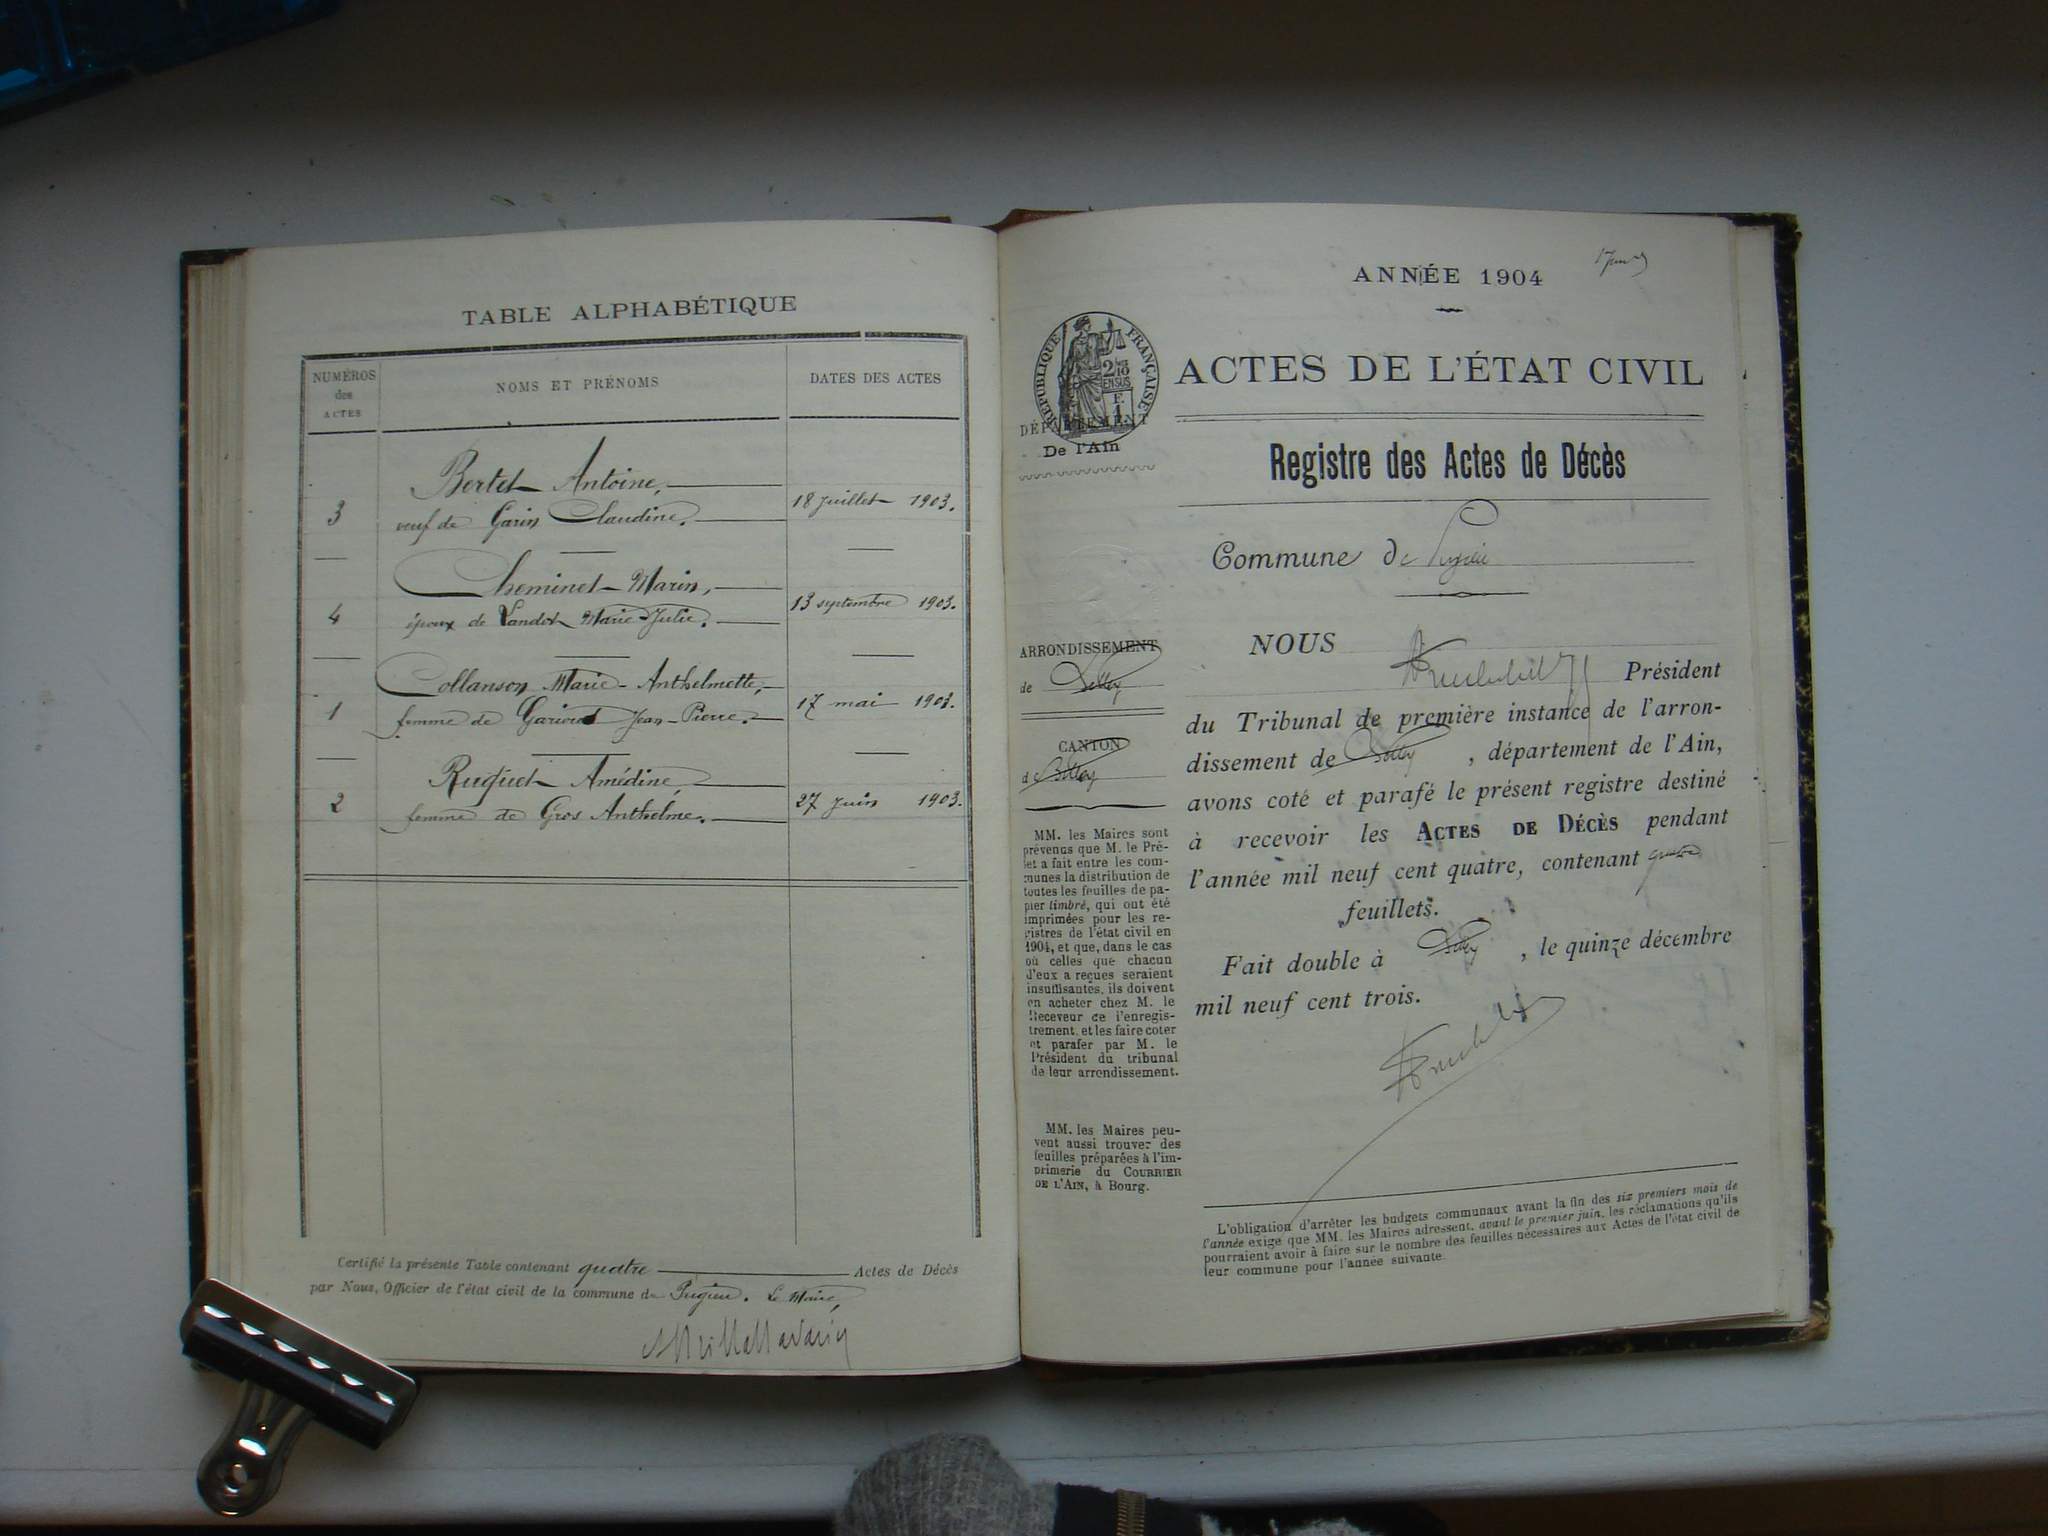 TABLE ALPHABÉTIQUE
NUMÉROS des ACTES
NOMS ET PRÉNOMS
DATES DES ACTES
Bertet Antoine,
3 veuf de Garin Claudine. 18 Juillet 1903.
Cheminet Marin,
4 époux de Landot Marie-Julie. 13 septembre 1903.
Collanson Marie-Anthelmette,
1 femme de Jean-Pierre. 17 mai 1903.
Ruguet Amédine,
2 femme de Gros Anthelme. 27 Juin 1903.
Certifié la présente Table contenant quatre Actes de Décès
par Nous, Officier de l'état civil de la commune de Pugieu. Le Maire,
ANNÉE 1904
RÉPUBLIQUE FRANÇAISE
DÉPARTEMENT
De l'Ain
ACTES DE L'ÉTAT CIVIL
Registre des Actes de Décès
Commune de Pugieu
ARRONDISSEMENT
de Belley
CANTON
de Belley
MM. les Maires sont
prévenus que M. le Pré-
fet a fait entre les com-
munes la distribution de
toutes les feuilles de pa-
pier timbré, qui ont été
imprimées pour les re-
gistres de l'état civil en
1904, et que, dans le cas
où celles que chacun
d'eux a reçues seraient
insuffisantes, ils doivent
en acheter chez M. le
Receveur de l'enregis-
trement, et les faire coter
et parafer par M. le
Président du tribunal
de leur arrondissement.
MM. les Maires peu-
vent aussi trouver des
feuilles préparées à l'im-
primerie du COURRIER
DE L'AIN, à Bourg.
NOUS
Président
du Tribunal de première instance de l'arron-
dissement de Belley, département de l'Ain,
avons coté et parafé le présent registre destiné
à recevoir les ACTES DE DÉCÈS pendant
l'année mil neuf cent quatre, contenant quatre
feuillets.
Fait double à Belley, le quinze décembre
mil neuf cent trois.
L'obligation d'arrêter les budgets communaux avant la fin des six premiers mois de
l'année exige que MM. les Maires adressent, avant le premier juin, les réclamations qu'ils
pourraient avoir à faire sur le nombre des feuilles nécessaires aux Actes de l'état civil de
leur commune pour l'année suivante.